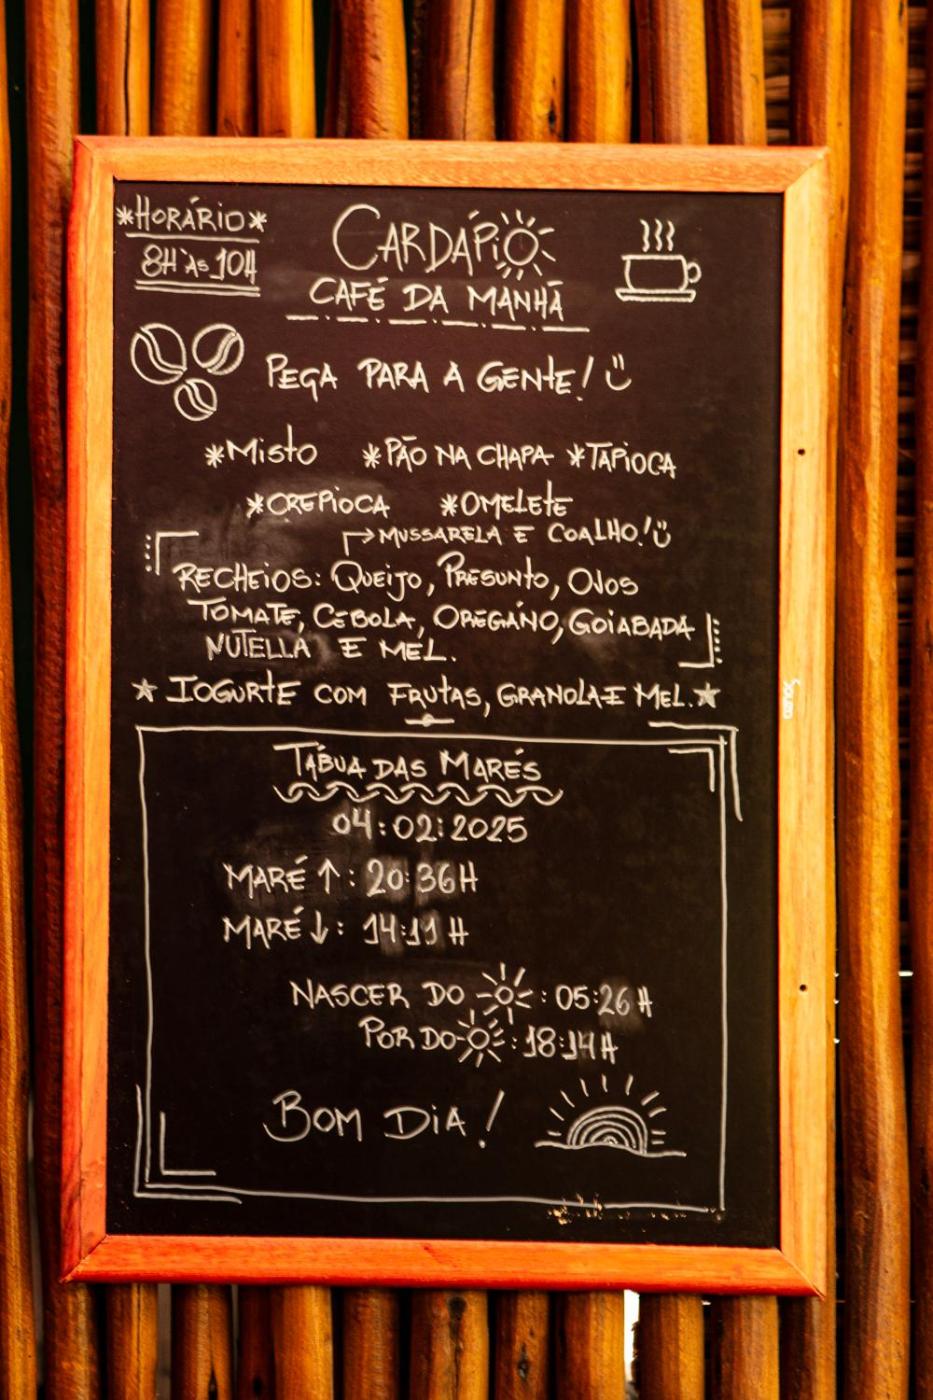 *HORÁRIO*
8H ÀS 10H
CARDÁPIO
CAFÉ DA MANHÃ
PEÇA PARA A GENTE!
*MISTO *PÃO NA CHAPA *TAPIOCA
*CREPIOCA *OMELETE
→MUSSARELA E COALHO!
RECHEIOS: QUEIJO, PRESUNTO, OVOS
TOMATE, CEBOLA, ORÉGANO, GOIABADA
NUTELLA E MEL.
★ IOGURTE COM FRUTAS, GRANOLA E MEL.★
TÁBUA DAS MARÉS
04:02:2025
MARÉ ↑: 20:36H
MARÉ ↓: 14:11 H
NASCER DO ☀: 05:26H
POR DO ☀: 18:14H
BOM DIA!